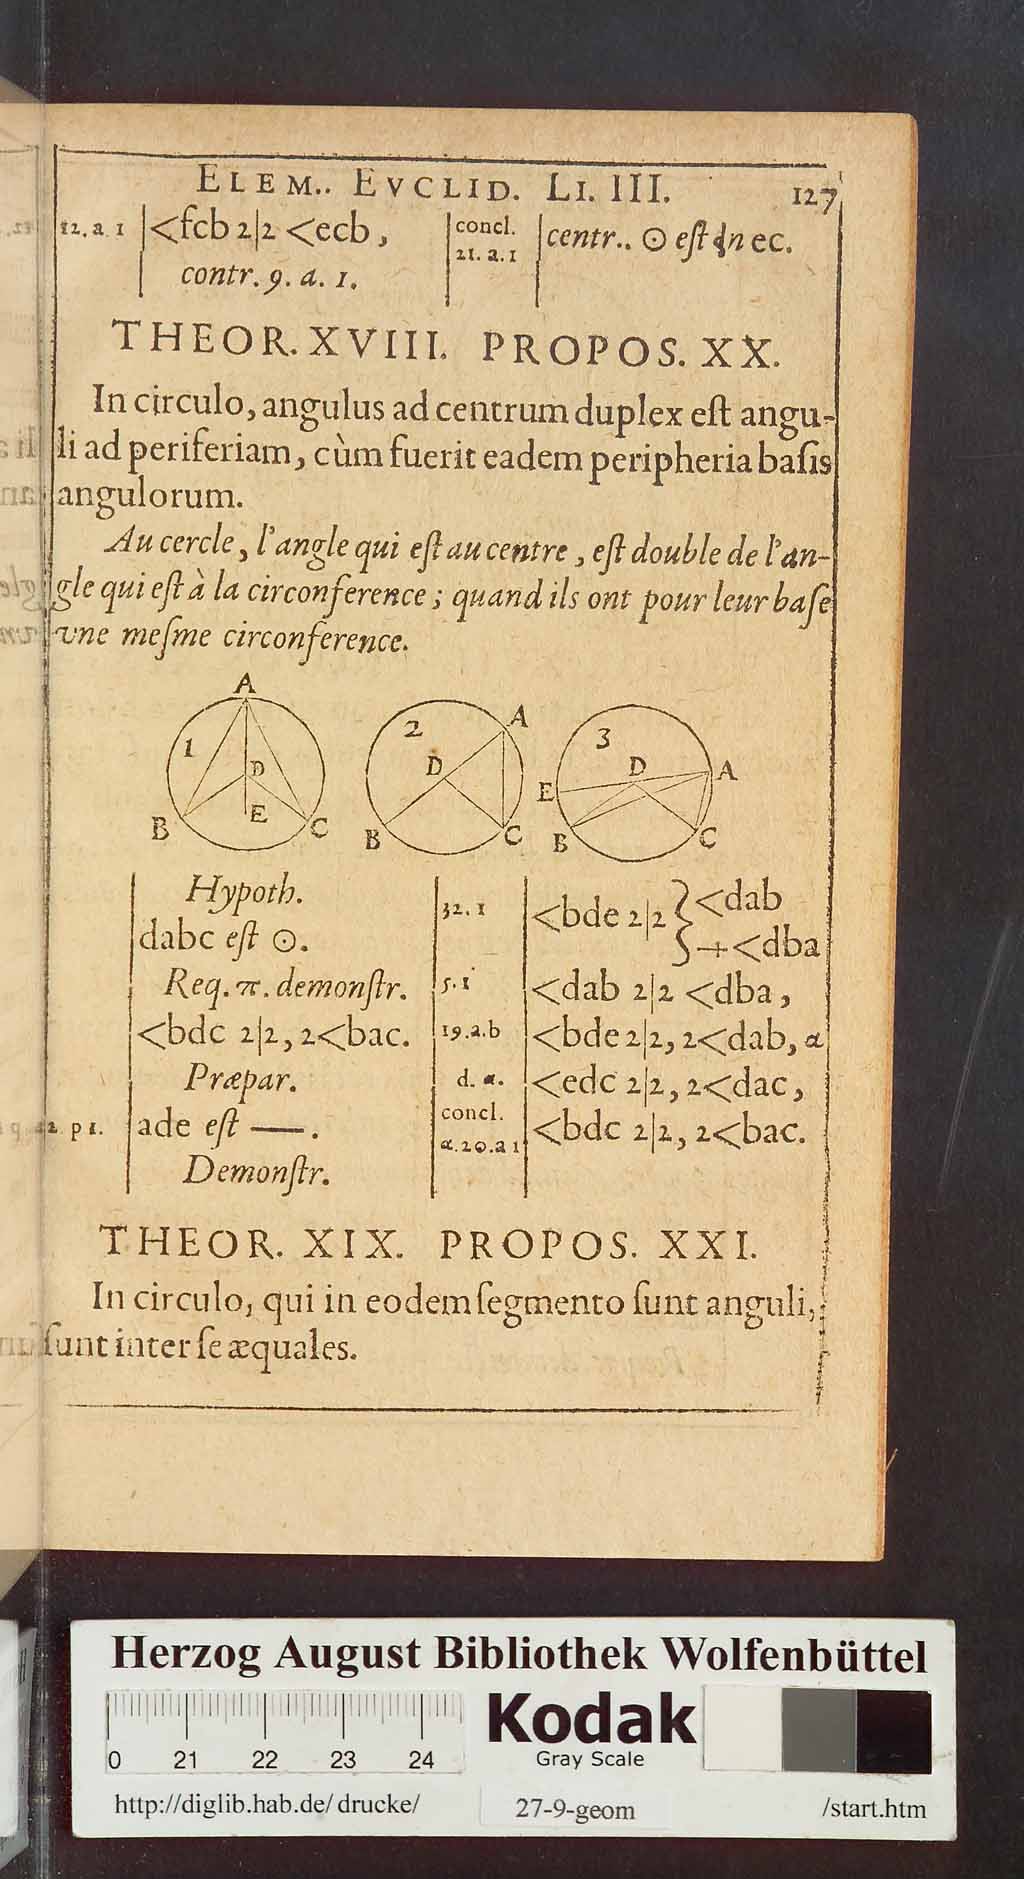 ELEM.. EVCLID. LI. III. 127
12. a. 1 <fcb 2|2 <ecb,
contr. 9. a. 1.
concl.
21. a. 1
centr.. ⊙ eſt in ec.
THEOR. XVIII. PROPOS. XX.
In circulo, angulus ad centrum duplex eſt angu-
li ad periferiam, cùm fuerit eadem peripheria baſis
angulorum.
Au cercle, l'angle qui eſt au centre, eſt double de l'an-
gle qui eſt à la circonference; quand ils ont pour leur baſe
vne meſme circonference.
A
1
D
B
E
C
2
A
D
B
C
3
D
A
E
B
C
Hypoth.
dabc eſt ⊙.
Req. π. demonſtr.
<bdc 2|2, 2<bac.
Præpar.
2. p 1. ade eſt —.
Demonſtr.
32. 1 <bde 2|2 { <dab
+ <dba
5. 1 <dab 2|2 <dba,
19. a. b <bde 2|2, 2<dab, α
d. α. <edc 2|2, 2<dac,
concl.
α. 20. a 1 <bdc 2|2, 2<bac.
THEOR. XIX. PROPOS. XXI.
In circulo, qui in eodem ſegmento ſunt anguli,
ſunt inter ſe æquales.
Herzog August Bibliothek Wolfenbüttel
0 21 22 23 24
Kodak
Gray Scale
http://diglib.hab.de/drucke/ 27-9-geom /start.htm